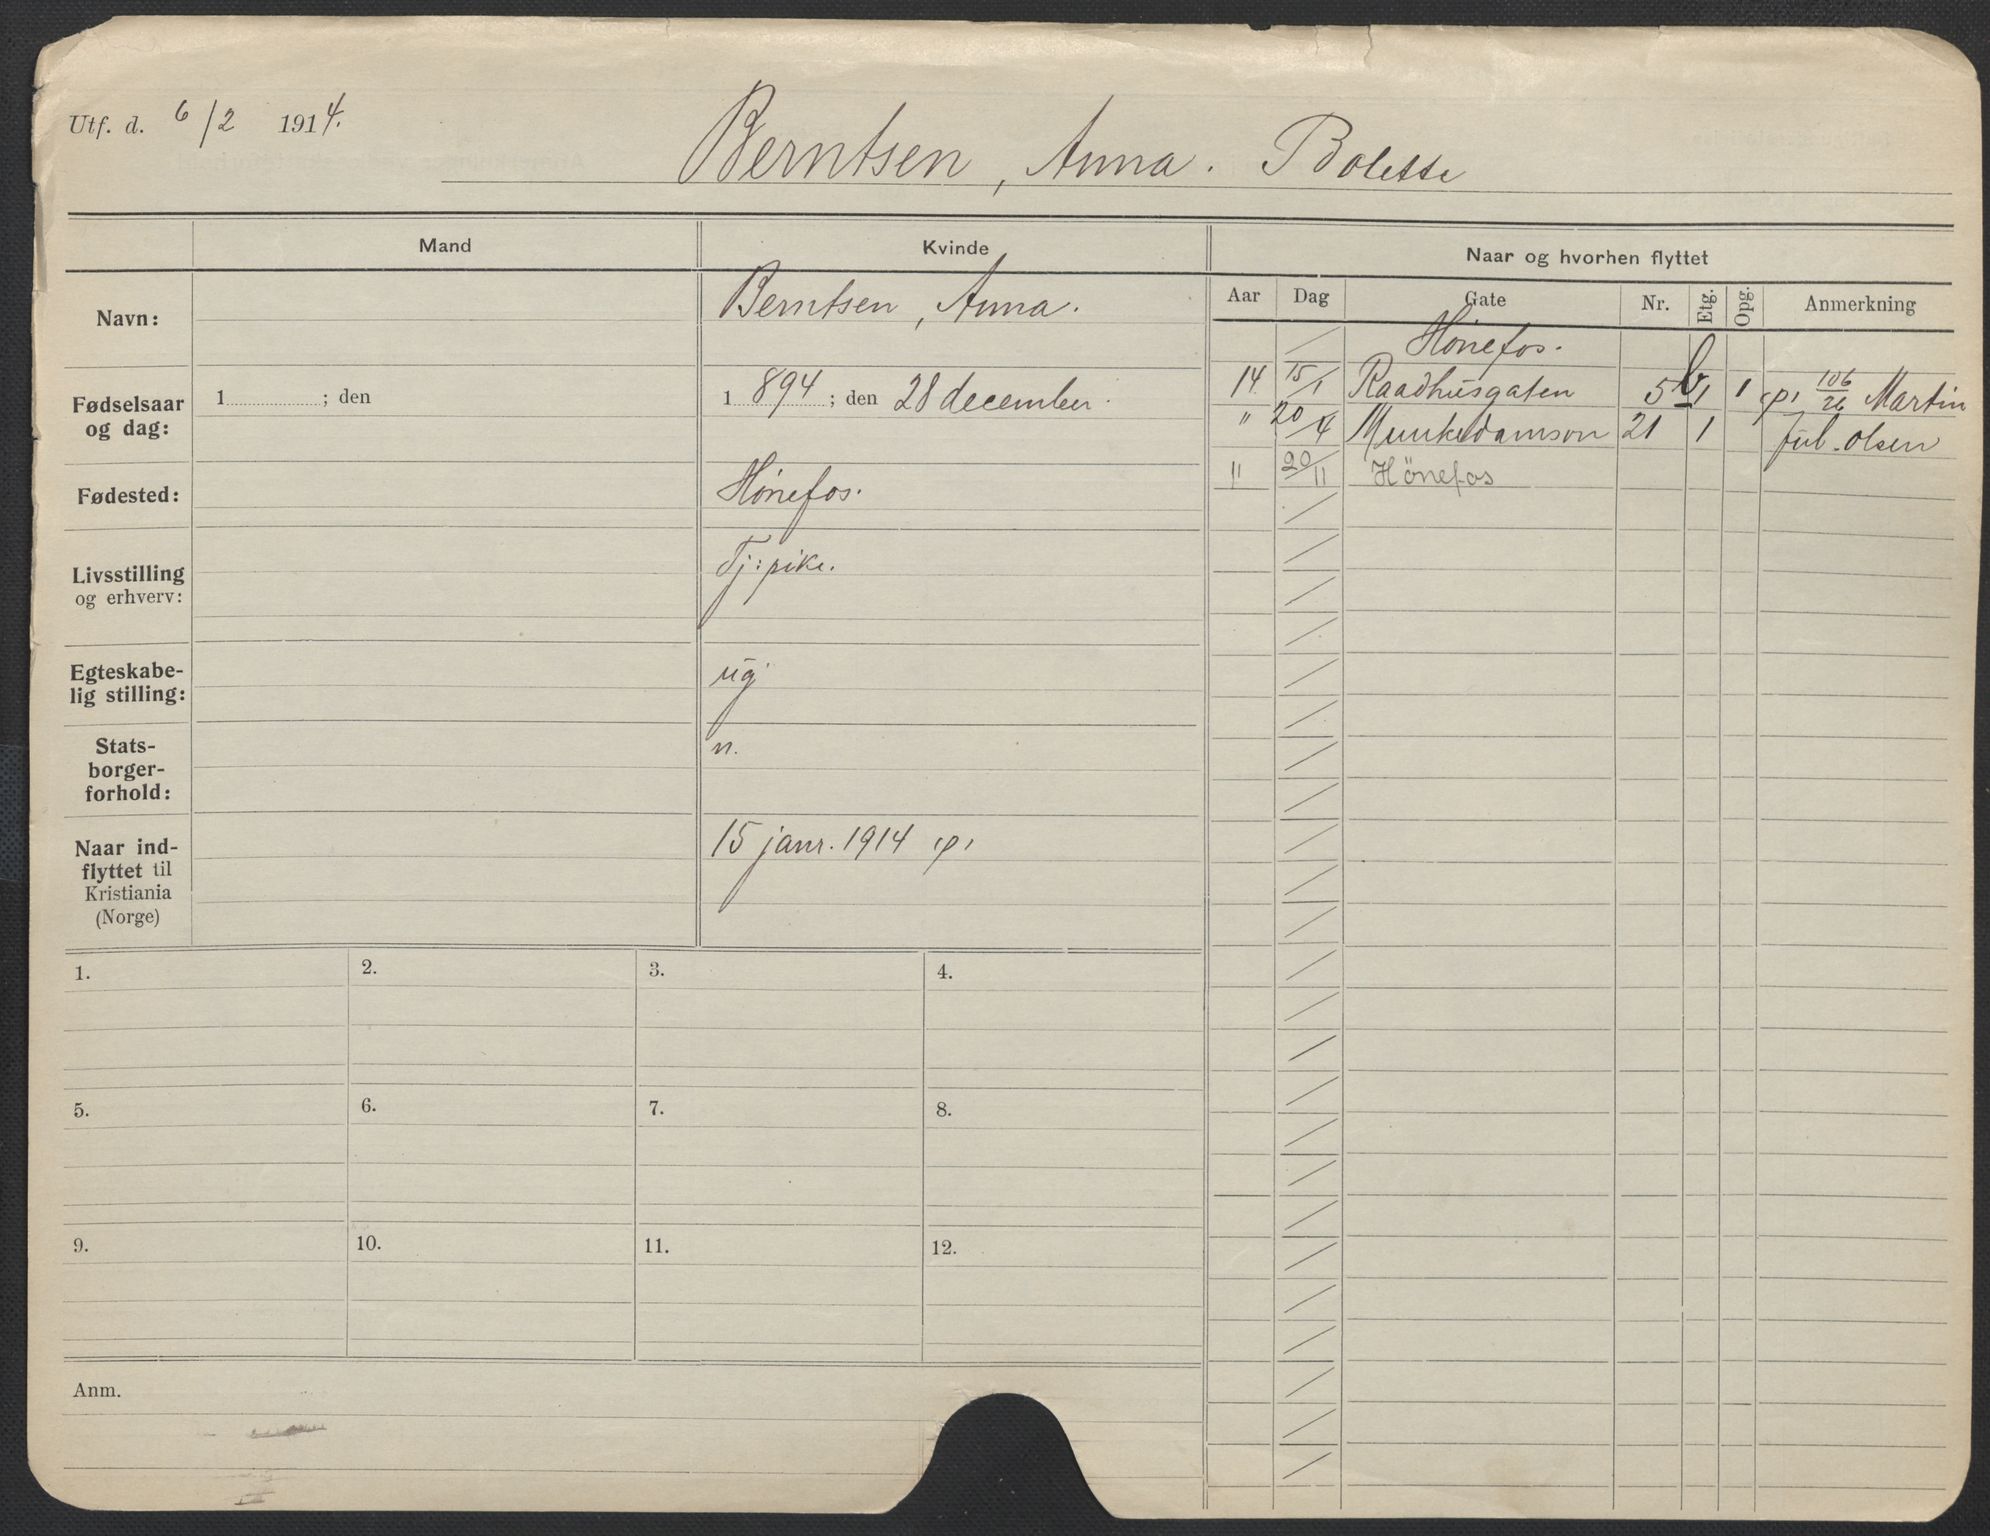 Utf. d. 6/2 1914.
Berntsen, Anna. Bolette
Mand
Kvinde
Naar og hvorhen flyttet
Aar Dag Gate Nr. Etg. Opg. Anmerkning
Navn:
Berntsen, Anna.
Fødselsaar
og dag:
1 ; den
1 894 ; den 28 december.
Fødested:
Hønefos.
Livsstilling
og erhverv:
Tj: pike.
Egteskabe-
lig stilling:
ug
Stats-
borger-
forhold:
n.
Naar ind-
flyttet til
Kristiania
(Norge)
15 janr. 1914
Hønefos.
14 15/1 Raadhusgaten 5 b 1 1 106/26 Martin
" 20/4 Munkedamsvn 21 1 Jul. Olsen
" 20/11 Hönefos
1.
2.
3.
4.
5.
6.
7.
8.
9.
10.
11.
12.
Anm.